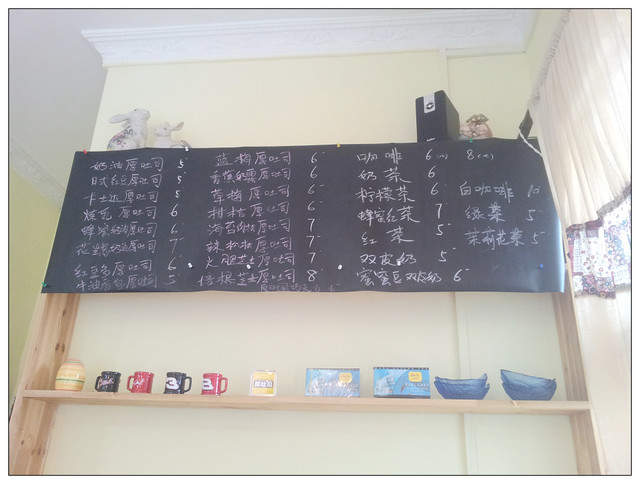 奶油厚吐司 5
日式红豆厚吐司 5
卡士达厚吐司 5
厚吐司 6
蜂蜜奶油厚吐司 6
花生奶油厚吐司 7
红豆 厚吐司 6
牛油 厚吐司 5
蓝梅厚吐司 6
香蕉 厚吐司 6
草梅厚吐司 6
柑桔厚吐司 6
海苔肉松厚吐司 7
辣松 厚吐司 7
火腿芝士厚吐司 7
培根芝士厚吐司 8
咖啡 6(小) 8(大)
奶茶 6
柠檬茶 6
蜂蜜红茶 7
红茶 5
双皮奶 5
蜜蜜豆双皮奶 6
白咖啡 10
绿茶 5
茉莉花茶 5
3
3